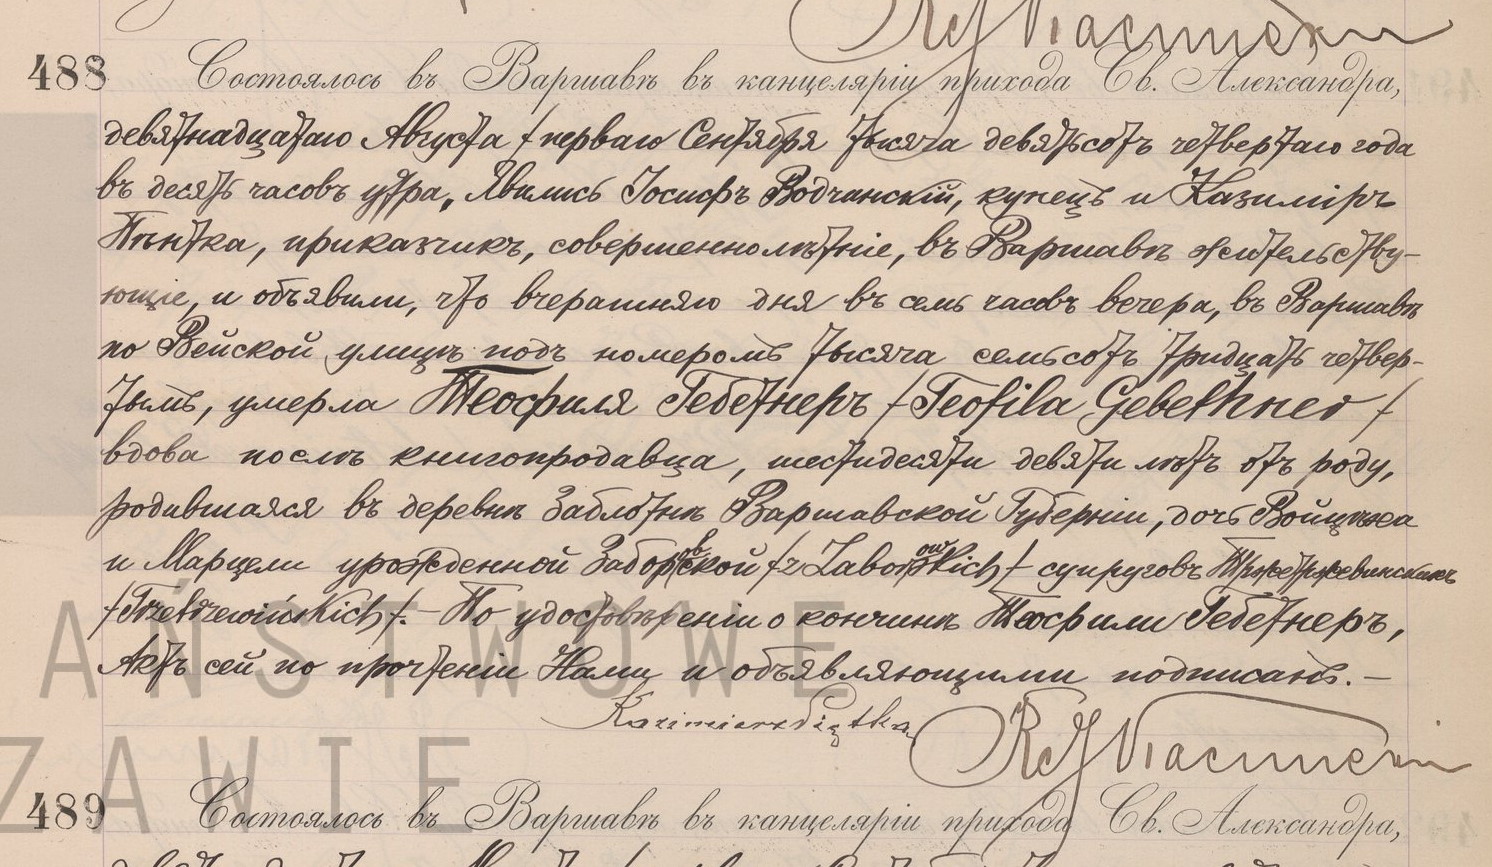 488 Состоялось въ Варшавѣ въ канцеляріи прихода Св. Александра,
девятнадцатаго Августа /перваго Сентября тысяча девятьсотъ четвертаго года
въ десять часовъ утра, Явились Іосифъ Водчанскій, купецъ и Казиміръ
Пѣнтка, приказчикъ, совершеннолѣтніе, въ Варшавѣ жительству-
ющіе, и объявили, что вчерашняго дня въ семь часовъ вечера, въ Варшавѣ
по Вейской улицѣ подъ номеромъ тысяча семьсотъ тридцать четвер-
тымъ, умерла Теофиля Гебетнеръ /Teofila Gebethner/
вдова послѣ книгопродавца, шестидесяти девяти лѣтъ отъ роду,
родившаяся въ деревнѣ Заблотнѣ Варшавской Губерніи, дочь Войцѣха
и Марцели урожденной супруговъ
По удостовѣреніи о кончинѣ Теофили Гебетнеръ,
Актъ сей по прочтеніи Нами и объявляющими подписанъ.—
Kazimierz Piętka
489 Состоялось въ Варшавѣ въ канцеляріи прихода Св. Александра,
AŃSTWOWE
ZAWIE